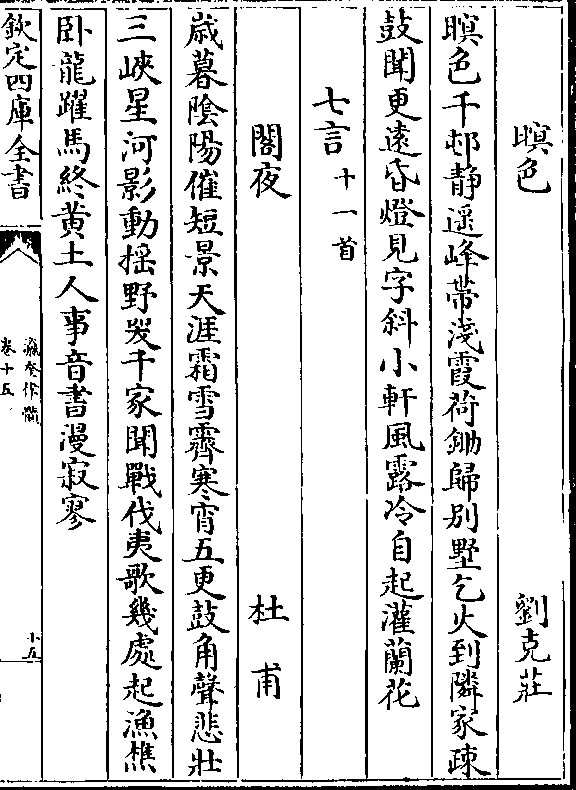 暝色　劉克莊
暝色千邨静遥峰帶淺霞荷鋤歸别墅乞火到隣家疎
鼓聞更遠昏燈見字斜小軒風露冷自起灌蘭花
七言十一首
閣夜　杜甫
歳暮陰陽催短景天涯霜雪霽寒宵五更鼓角聲悲壯
三峽星河影動摇野哭千家聞戰伐夷歌幾處起漁樵
卧龍躍馬終黄土人事音書漫寂寥
欽定四庫全書
瀛奎律髓
卷十五
十五